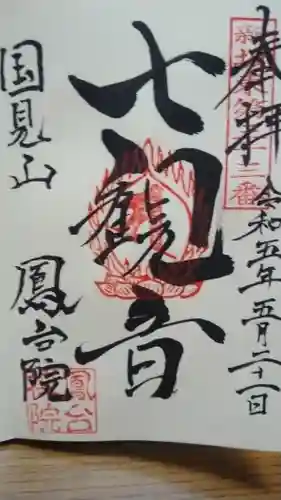 奉拝
第十三番
令和五年五月二十一日
七観音
国見山 鳳台院
鳳台院